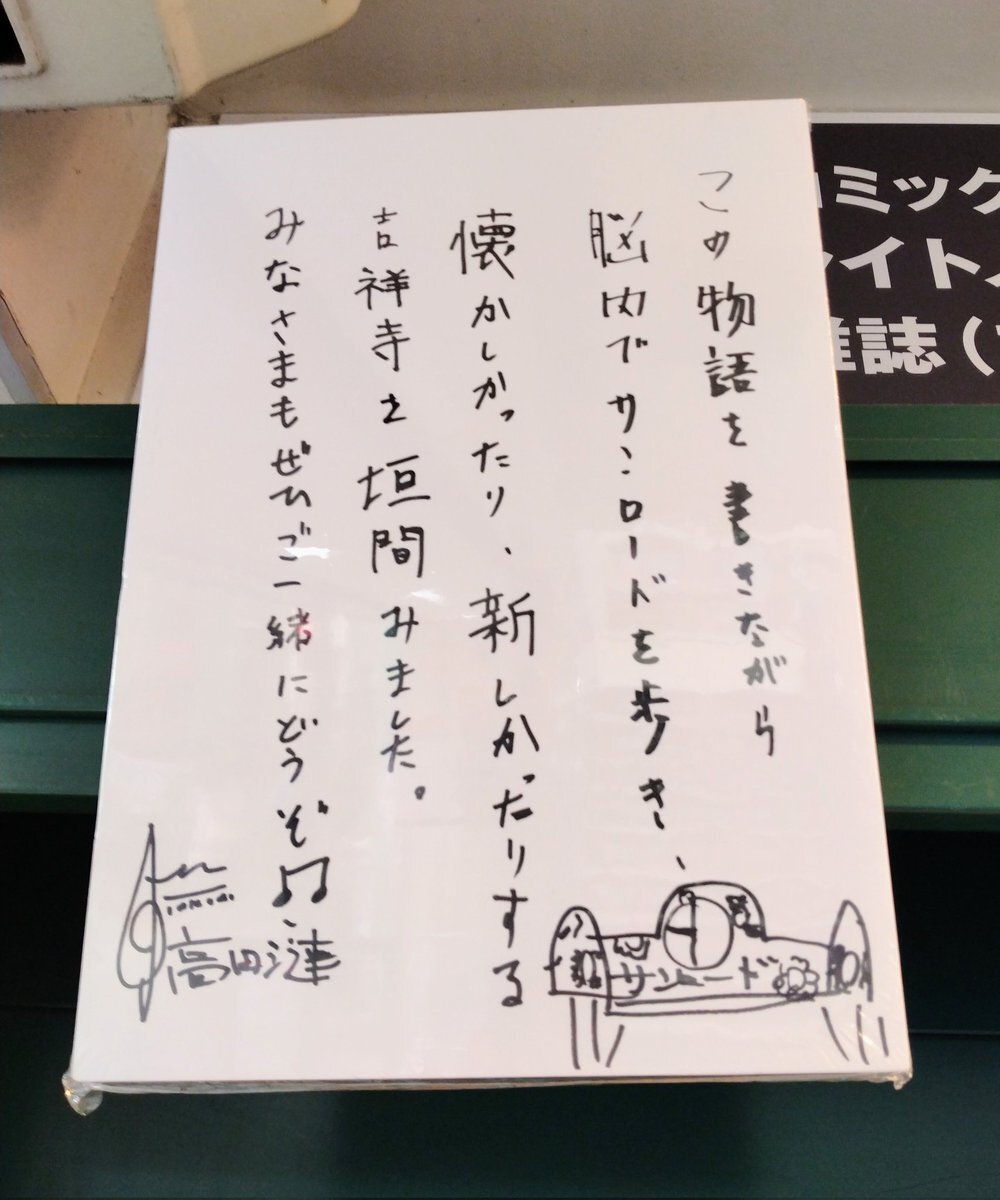 この物語を書きながら
脳内でサンロードを歩き、
懐かしかったり、新しかったりする
吉祥寺を垣間みました。
みなさまもぜひご一緒にどうぞ
高田漣
サンロード
コミック
誌（